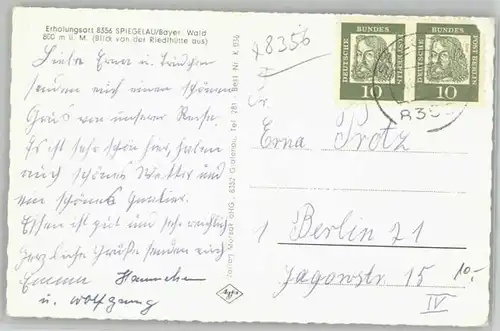 Erholungsort 8356 SPIEGELAU/Bayer. Wald
800 m ü. M. (Blick von der Riedlhütte aus)
Liebe Erna u. Trudchen
senden euch einen schönen
Gruß von unserer Reise.
Es ist sehr schön hier, haben
auch schönes Wetter und
ein schönes Quartier.
Essen ist gut und sehr reichlich
Herzliche Grüße senden euch
Emma Hannchen
u. Wolfgang
8356
DEUTSCHE BUNDESPOST BERLIN
10
DEUTSCHE BUNDESPOST BERLIN
10
835
Fr.
Erna Protz
1 Berlin 21
Jagowstr. 15
IV
10,-
8352 Grafenau, Tel. 281 Best. Nr. K 836
Agfa